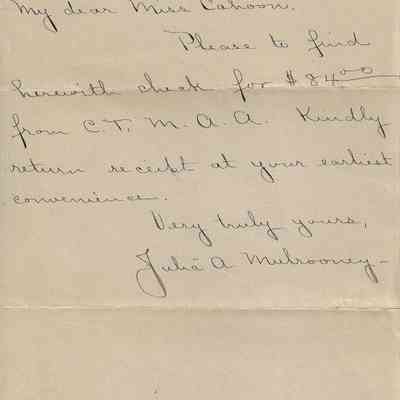 My dear Miss Cahoon.
Please to find
herewith check for $84.00
from C.T. M.A.A. Kindly
return receipt at your earliest
convenience.
Very truly yours,
Julia A Mulrooney-